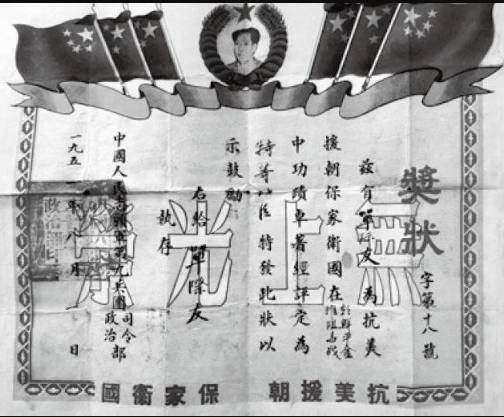 獎狀
字第十八號
無上光榮
茲有單友為抗美
援朝保家衛國在
中功績卓著經評定為
特等功臣特發此狀以
示鼓勵
右給單友
執存
中國人民志願軍第九兵團司令部
政治部
一九五一年八月 日
抗美援朝 保家衛國